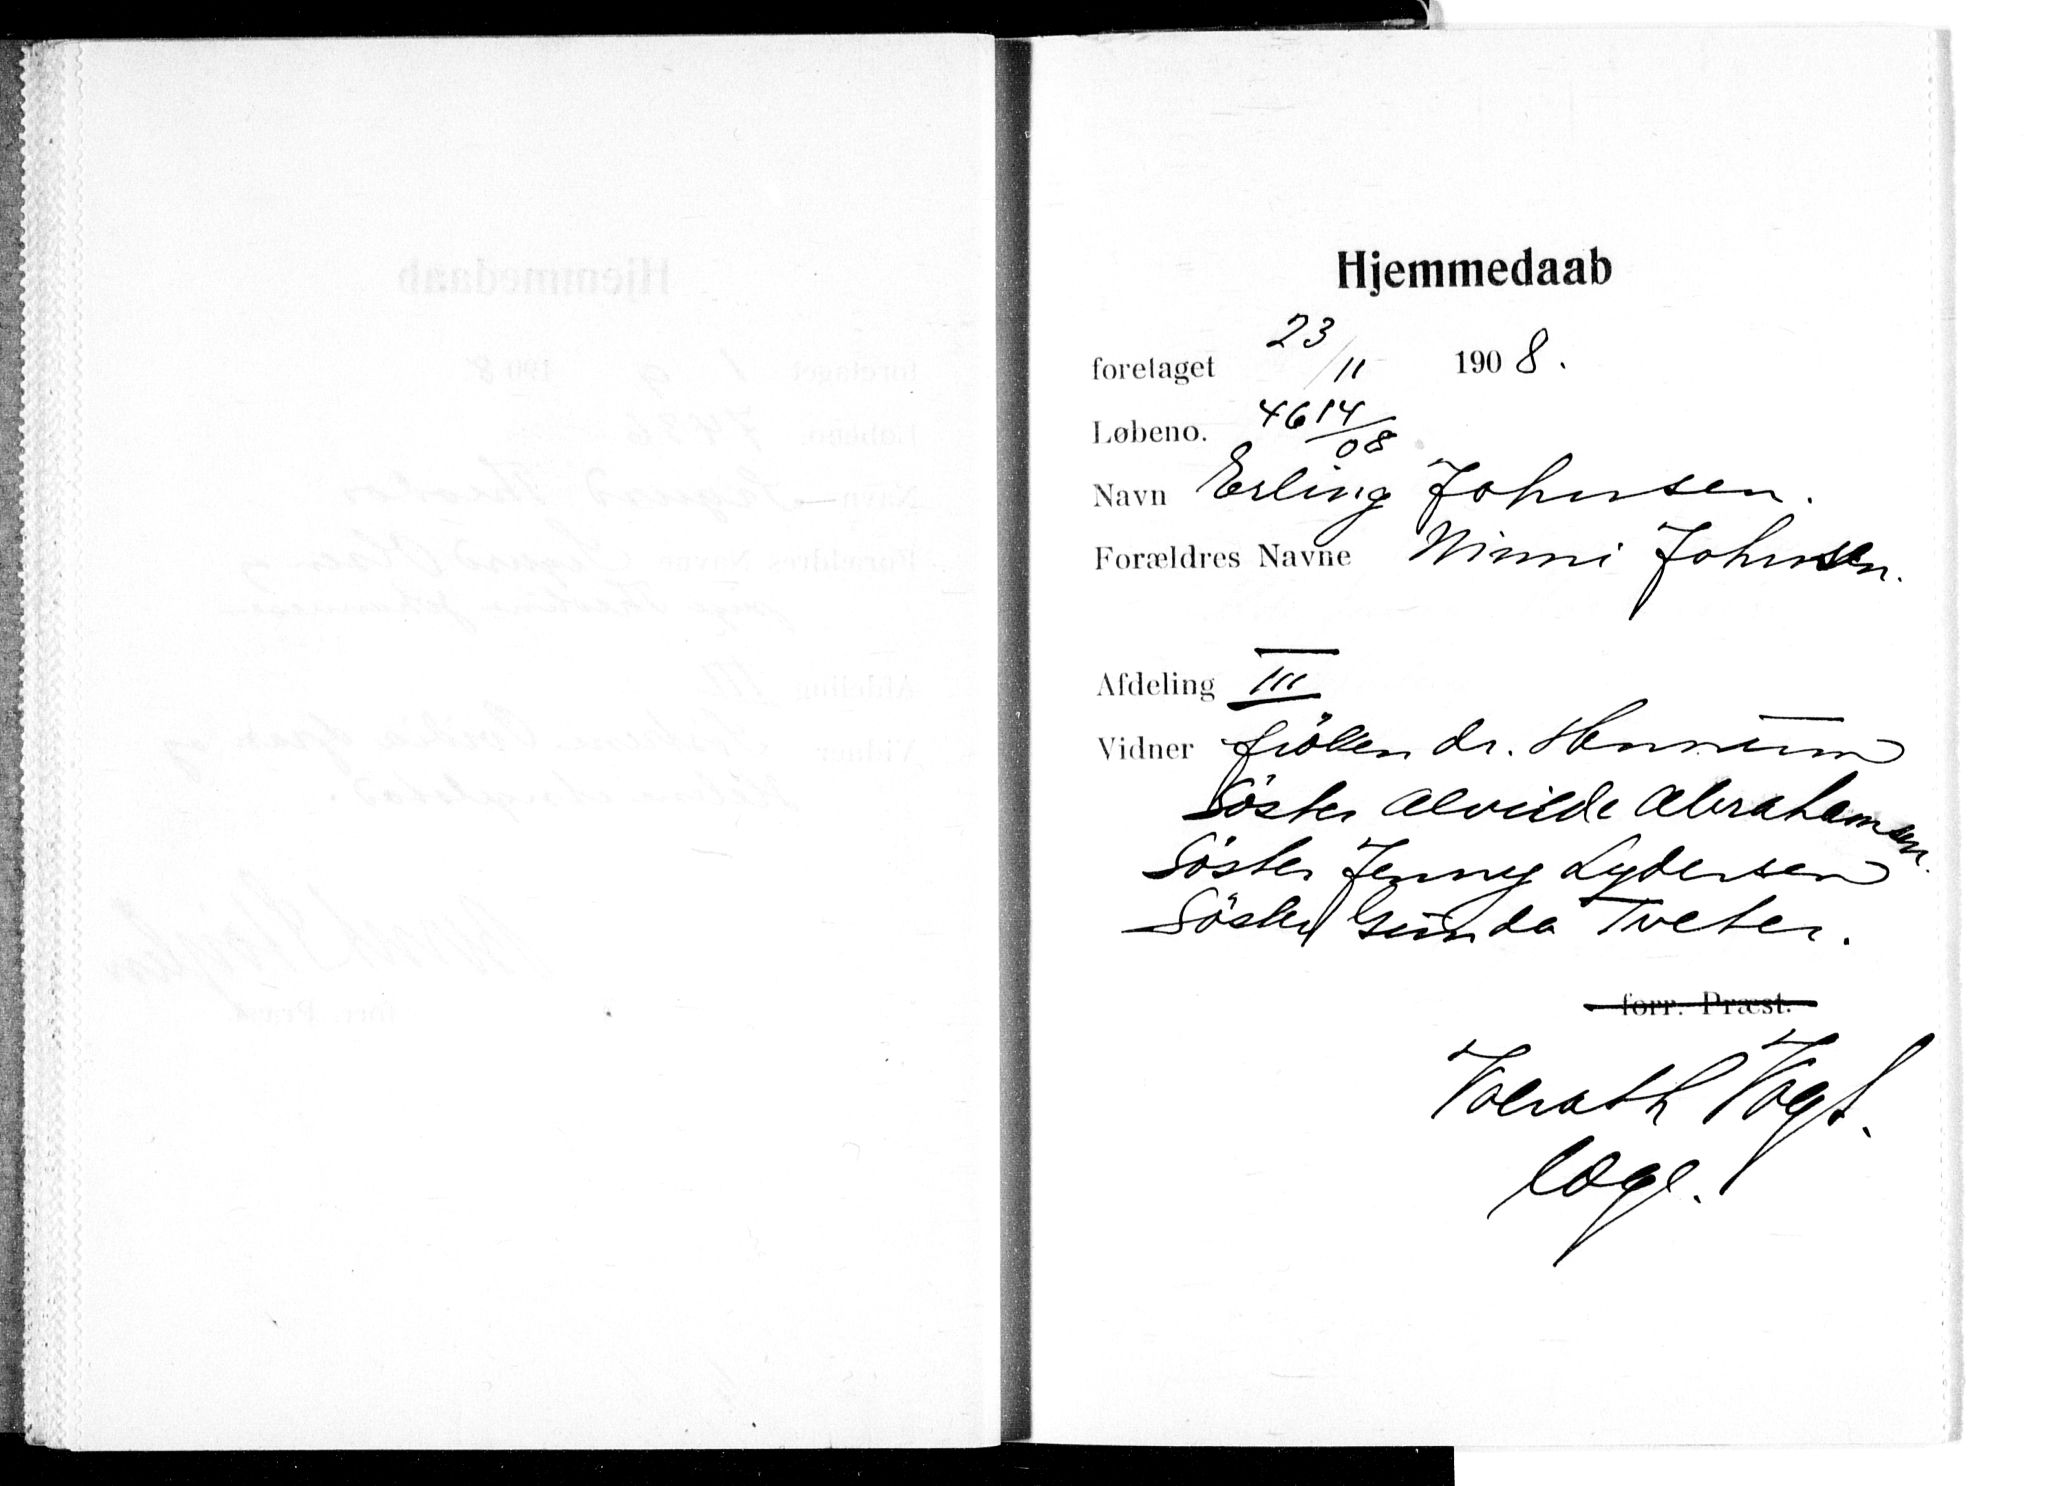 Hjemmedaab
foretaget 23/11 1908.
Løbeno. 4614/08
Navn Erling Johnsen.
Forældres Navne Ninni Johnsen.
Afdeling III
Vidner fröken dr.
Söster Alvilde Abrahamsen.
Söster Jenny Lydersen
Söster Gunda Tveter.
forr. Præst.
Volrath Vogt.
læge.